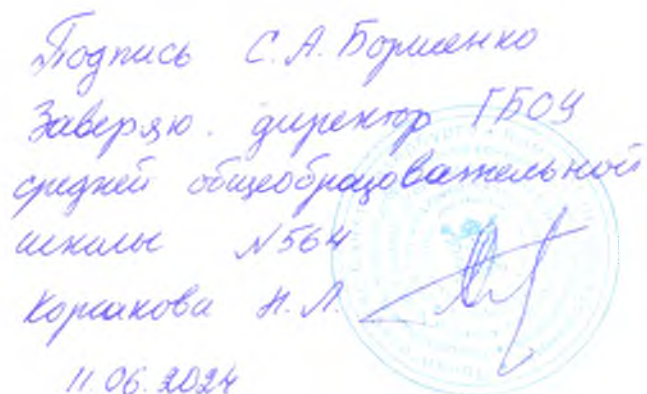 Подпись С.А. Борисенко
Заверяю. директор ГБОУ
средней общеобразовательной
школы №564
Корсакова Н.Л.
11.06.2024